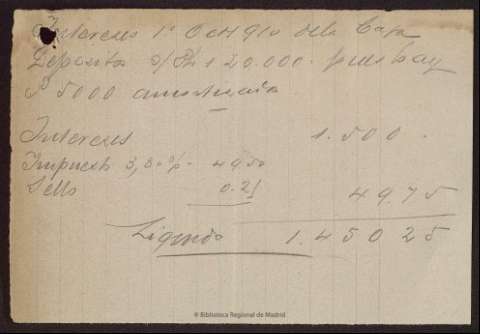 Intereses 1º Oct 910 de la Casa
Deposito s/ Pts 120.000. pues hay
5000
Intereses 1.500.
Impuesto 3,30% 49.50
Sello 0.25 49.75
Liquido 1.450 25
© Biblioteca Regional de Madrid